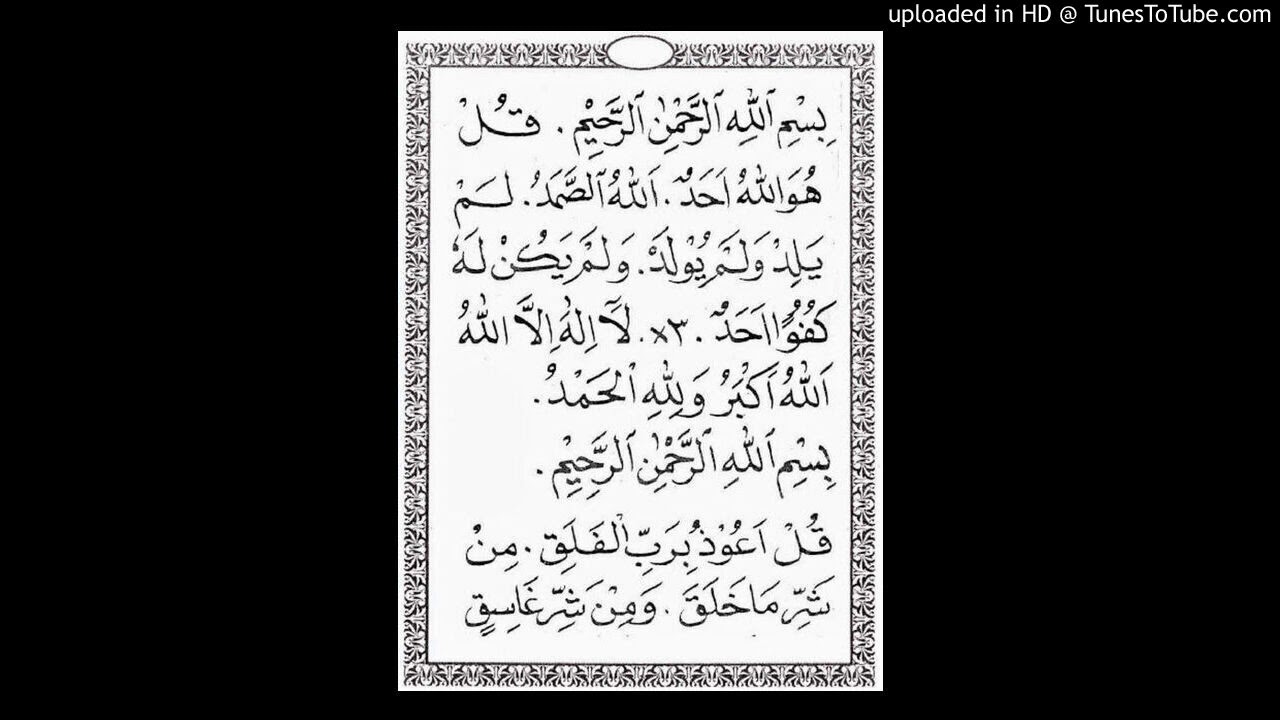 uploaded in HD @ TunesToTube.com
بِسْمِ ٱللّٰهِ ٱلرَّحْمٰنِ ٱلرَّحِيْمِ . قُلْ
هُوَاللّٰهُ اَحَدٌ . اَللّٰهُ ٱلصَّمَدُ . لَمْ
يَلِدْ وَلَمْ يُوْلَدْ . وَلَمْ يَكُنْ لَهٗ
كُفُوًا اَحَدٌ . ×٣ . لَآ اِلٰهَ اِلَّا اللّٰهُ
اَللّٰهُ اَكْبَرُ وَلِلّٰهِ الْحَمْدُ .
بِسْمِ ٱللّٰهِ ٱلرَّحْمٰنِ ٱلرَّحِيْمِ .
قُلْ اَعُوْذُ بِرَبِّ الْفَلَقِ . مِنْ
شَرِّ مَا خَلَقَ . وَمِنْ شَرِّ غَاسِقٍ